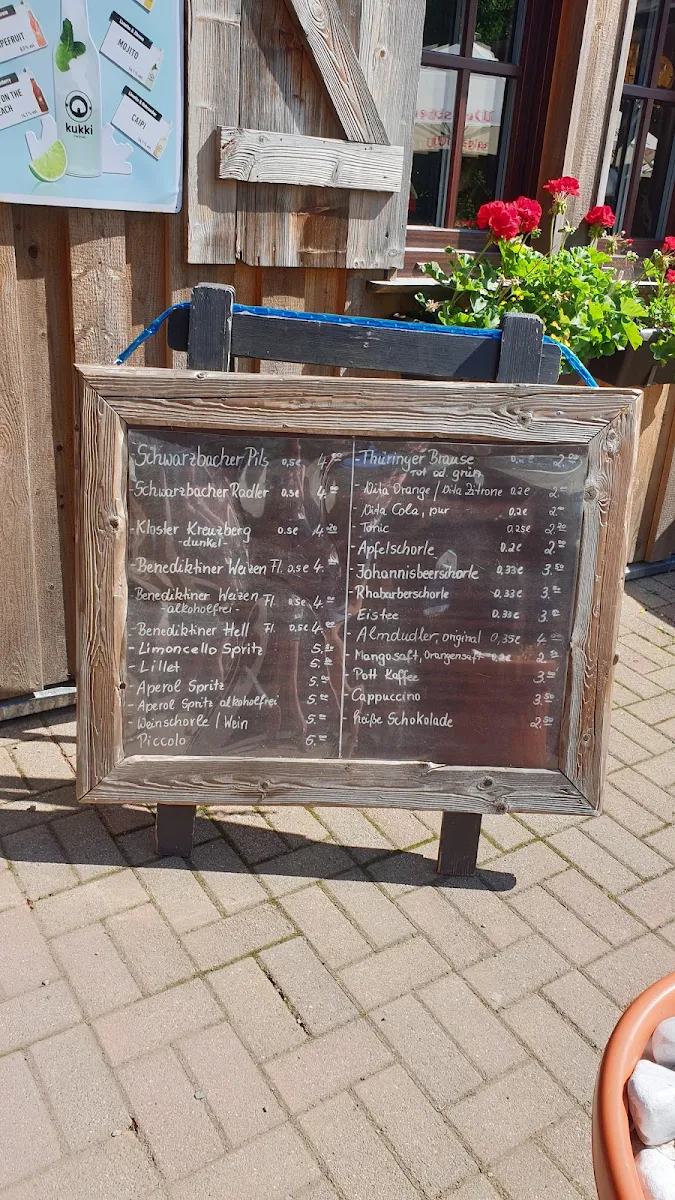 MOJITO
CAIPI
kukki
Schwarzbacher Pils 0,5l 4.
Schwarzbacher Radler 0,5l 4.
- Kloster Kreuzberg 0.5l 4.20
- dunkel -
- Benediktiner Weizen Fl. 0,5l 4.
Benediktiner Weizen Fl. 0,5l 4.
- alkoholfrei -
- Benediktiner Hell Fl. 0,5l 4.
- Limoncello Spritz 5.
- Lillet 6.
- Aperol Spritz 5.
- Aperol Spritz alkoholfrei 5.
- Weinschorle / Wein 5.
Piccolo 5.
- Thüringer Brause 2.
rot od. grün
Vita Orange / Vita Zitrone 0.2l 2.
Vita Cola, pur 0.2l 2.
- Tonic 0.25l 2.
- Apfelschorle 0.2l 2.
- Johannisbeerschorle 0,33l 3.
- Rhabarberschorle 0.33l 3.
- Eistee 0.33l 3.
- Almdudler, original 0,35l 4.
- Mangosaft, Orangensaft 0.2l 2.
- Pott Kaffee 3.
Cappuccino 3.50
- heiße Schokolade 2.50